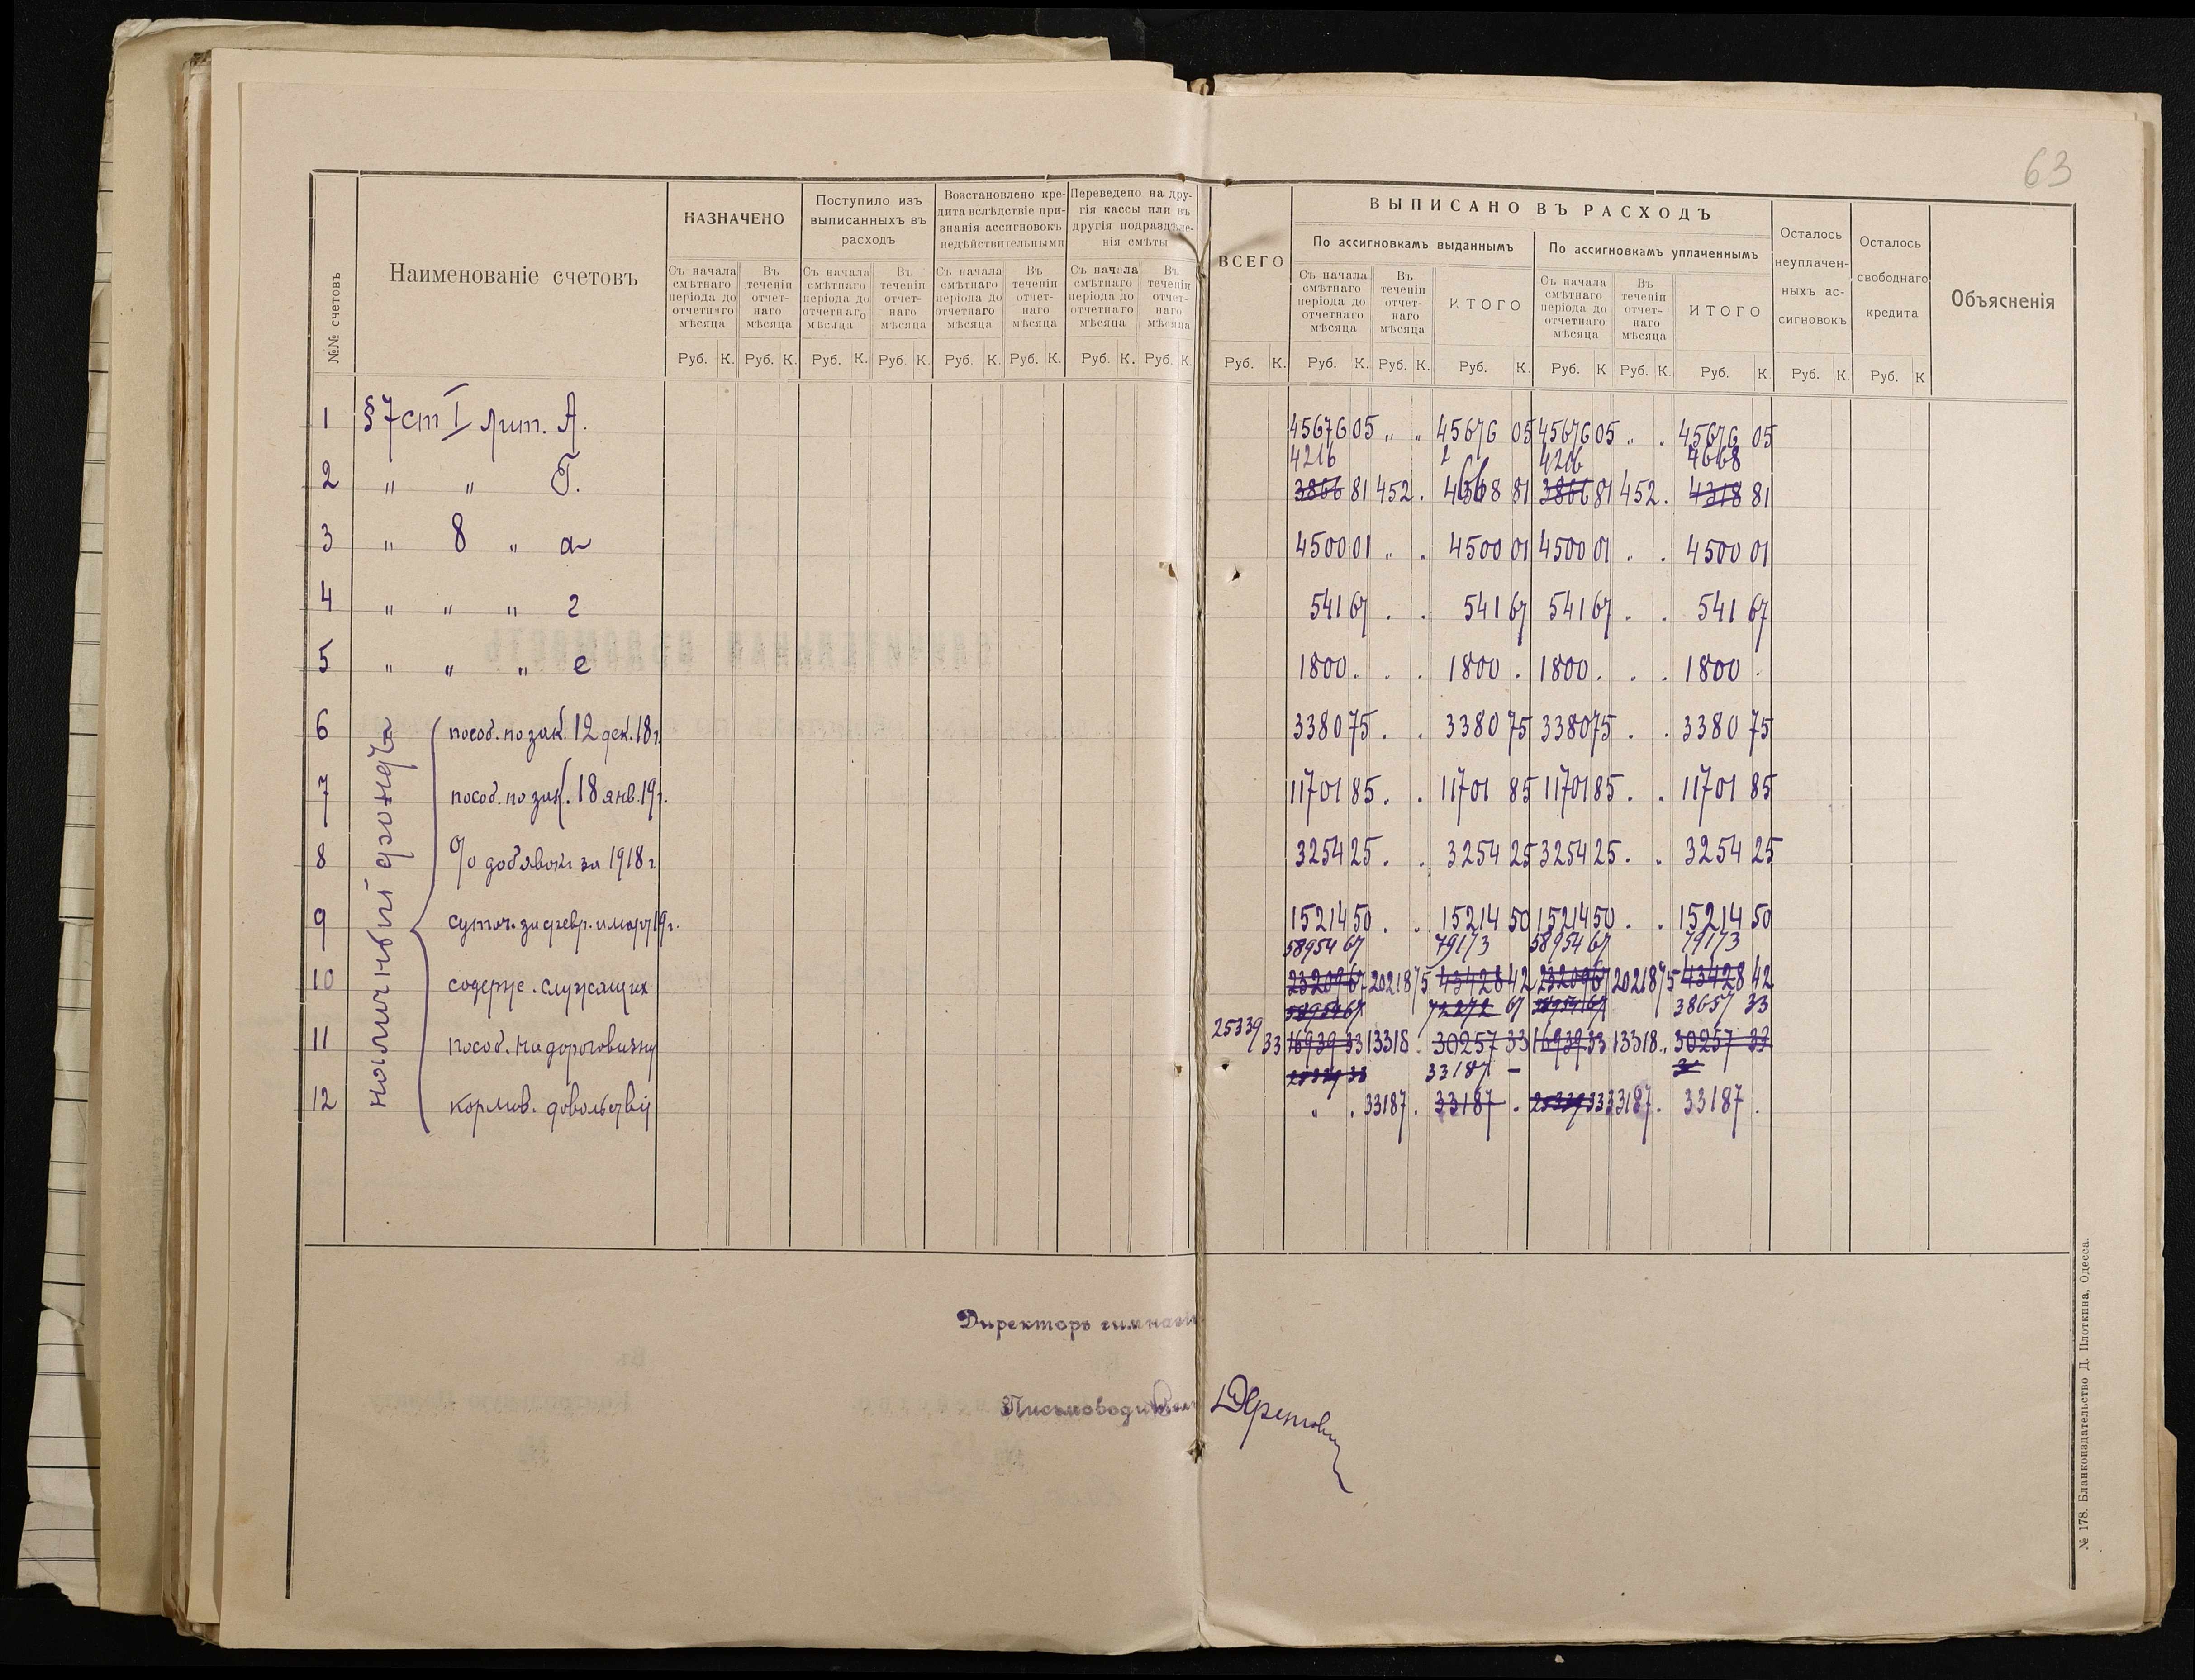 63
№№ счетовъ
Наименованіе счетовъ
НАЗНАЧЕНО
Поступило изъ
выписанныхъ въ
расходъ
Возстановлено кре-
дита вслѣдствіе при-
знанія ассигновокъ
недѣйствительными
Переведено на дру-
гія кассы или въ
другія подраздѣле-
нія смѣты
Съ начала смѣтнаго періода до отчетнаго мѣсяца
Въ теченіи отчет-наго мѣсяца
Съ начала смѣтнаго періода до отчетнаго мѣсяца
Въ теченіи отчет-наго мѣсяца
Съ начала смѣтнаго періода до отчетнаго мѣсяца
Въ теченіи отчет-наго мѣсяца
Съ начала смѣтнаго періода до отчетнаго мѣсяца
Въ теченіи отчет-наго мѣсяца
Руб. К. Руб. К. Руб. К. Руб. К. Руб. К. Руб. К. Руб. К. Руб. К.
ВСЕГО
ВЫПИСАНО ВЪ РАСХОДЪ
По ассигновкамъ выданнымъ
По ассигновкамъ уплаченнымъ
Съ начала смѣтнаго періода до отчетнаго мѣсяца
Въ теченіи отчет-наго мѣсяца
ИТОГО
Съ начала смѣтнаго періода до отчетнаго мѣсяца
Въ теченіи отчет-наго мѣсяца
ИТОГО
Осталось
неуплачен-
ныхъ ас-
сигновокъ
Осталось
свободнаго
кредита
Объясненія
Руб. К. Руб. К. Руб. К. Руб. К. Руб. К Руб. К. Руб. К Руб. К. Руб. К
1 §7 ст I лит. А. 45676 05 „ „ 45676 05 45676 05 „ . 45676 05
4216 4216 4668
2 „ „ Г. 3866 81 452 . 4668 81 3866 81 452 . 4318 81
3 „ 8 „ а 4500 01 „ . 4500 01 4500 01 . . 4500 01
4 „ „ „ г 541 67 . . 541 67 541 67 . . 541 67
5 „ „ „ е 1800 . . . 1800 . 1800 . . . 1800 .
наличный фондъ
6 пособ. по зак. 12 дек. 18 г. 3380 75 . . 3380 75 3380 75 . . 3380 75
7 пособ. по зак. 18 янв. 19 г. 11701 85 . . 11701 85 11701 85 . . 11701 85
8 % добавки за 1918 г. 3254 25 . . 3254 25 3254 25 . . 3254 25
9 суточ. за февр. и март 19 г. 15214 50 . . 15214 50 15214 50 . . 15214 50
58954 67 79173 58954 67 79173
10 содерж. служащих 23209 67 20218 75 43428 42 23209 67 20218 75 43428 42
58954 67 72272 67 58954 67 38657 33
11 пособ. на дороговизну 25339 33 16939 33 13318 . 30257 33 16939 33 13318 . 30257 33
25339 33 33187 –
12 кормов. довольствія „ . 33187 . 33187 . 25339 33 33187 . 33187 .
Директоръ гимназіи
Письмоводитель
№ 178. Бланкоиздательство Д. Плоткина, Одесса.